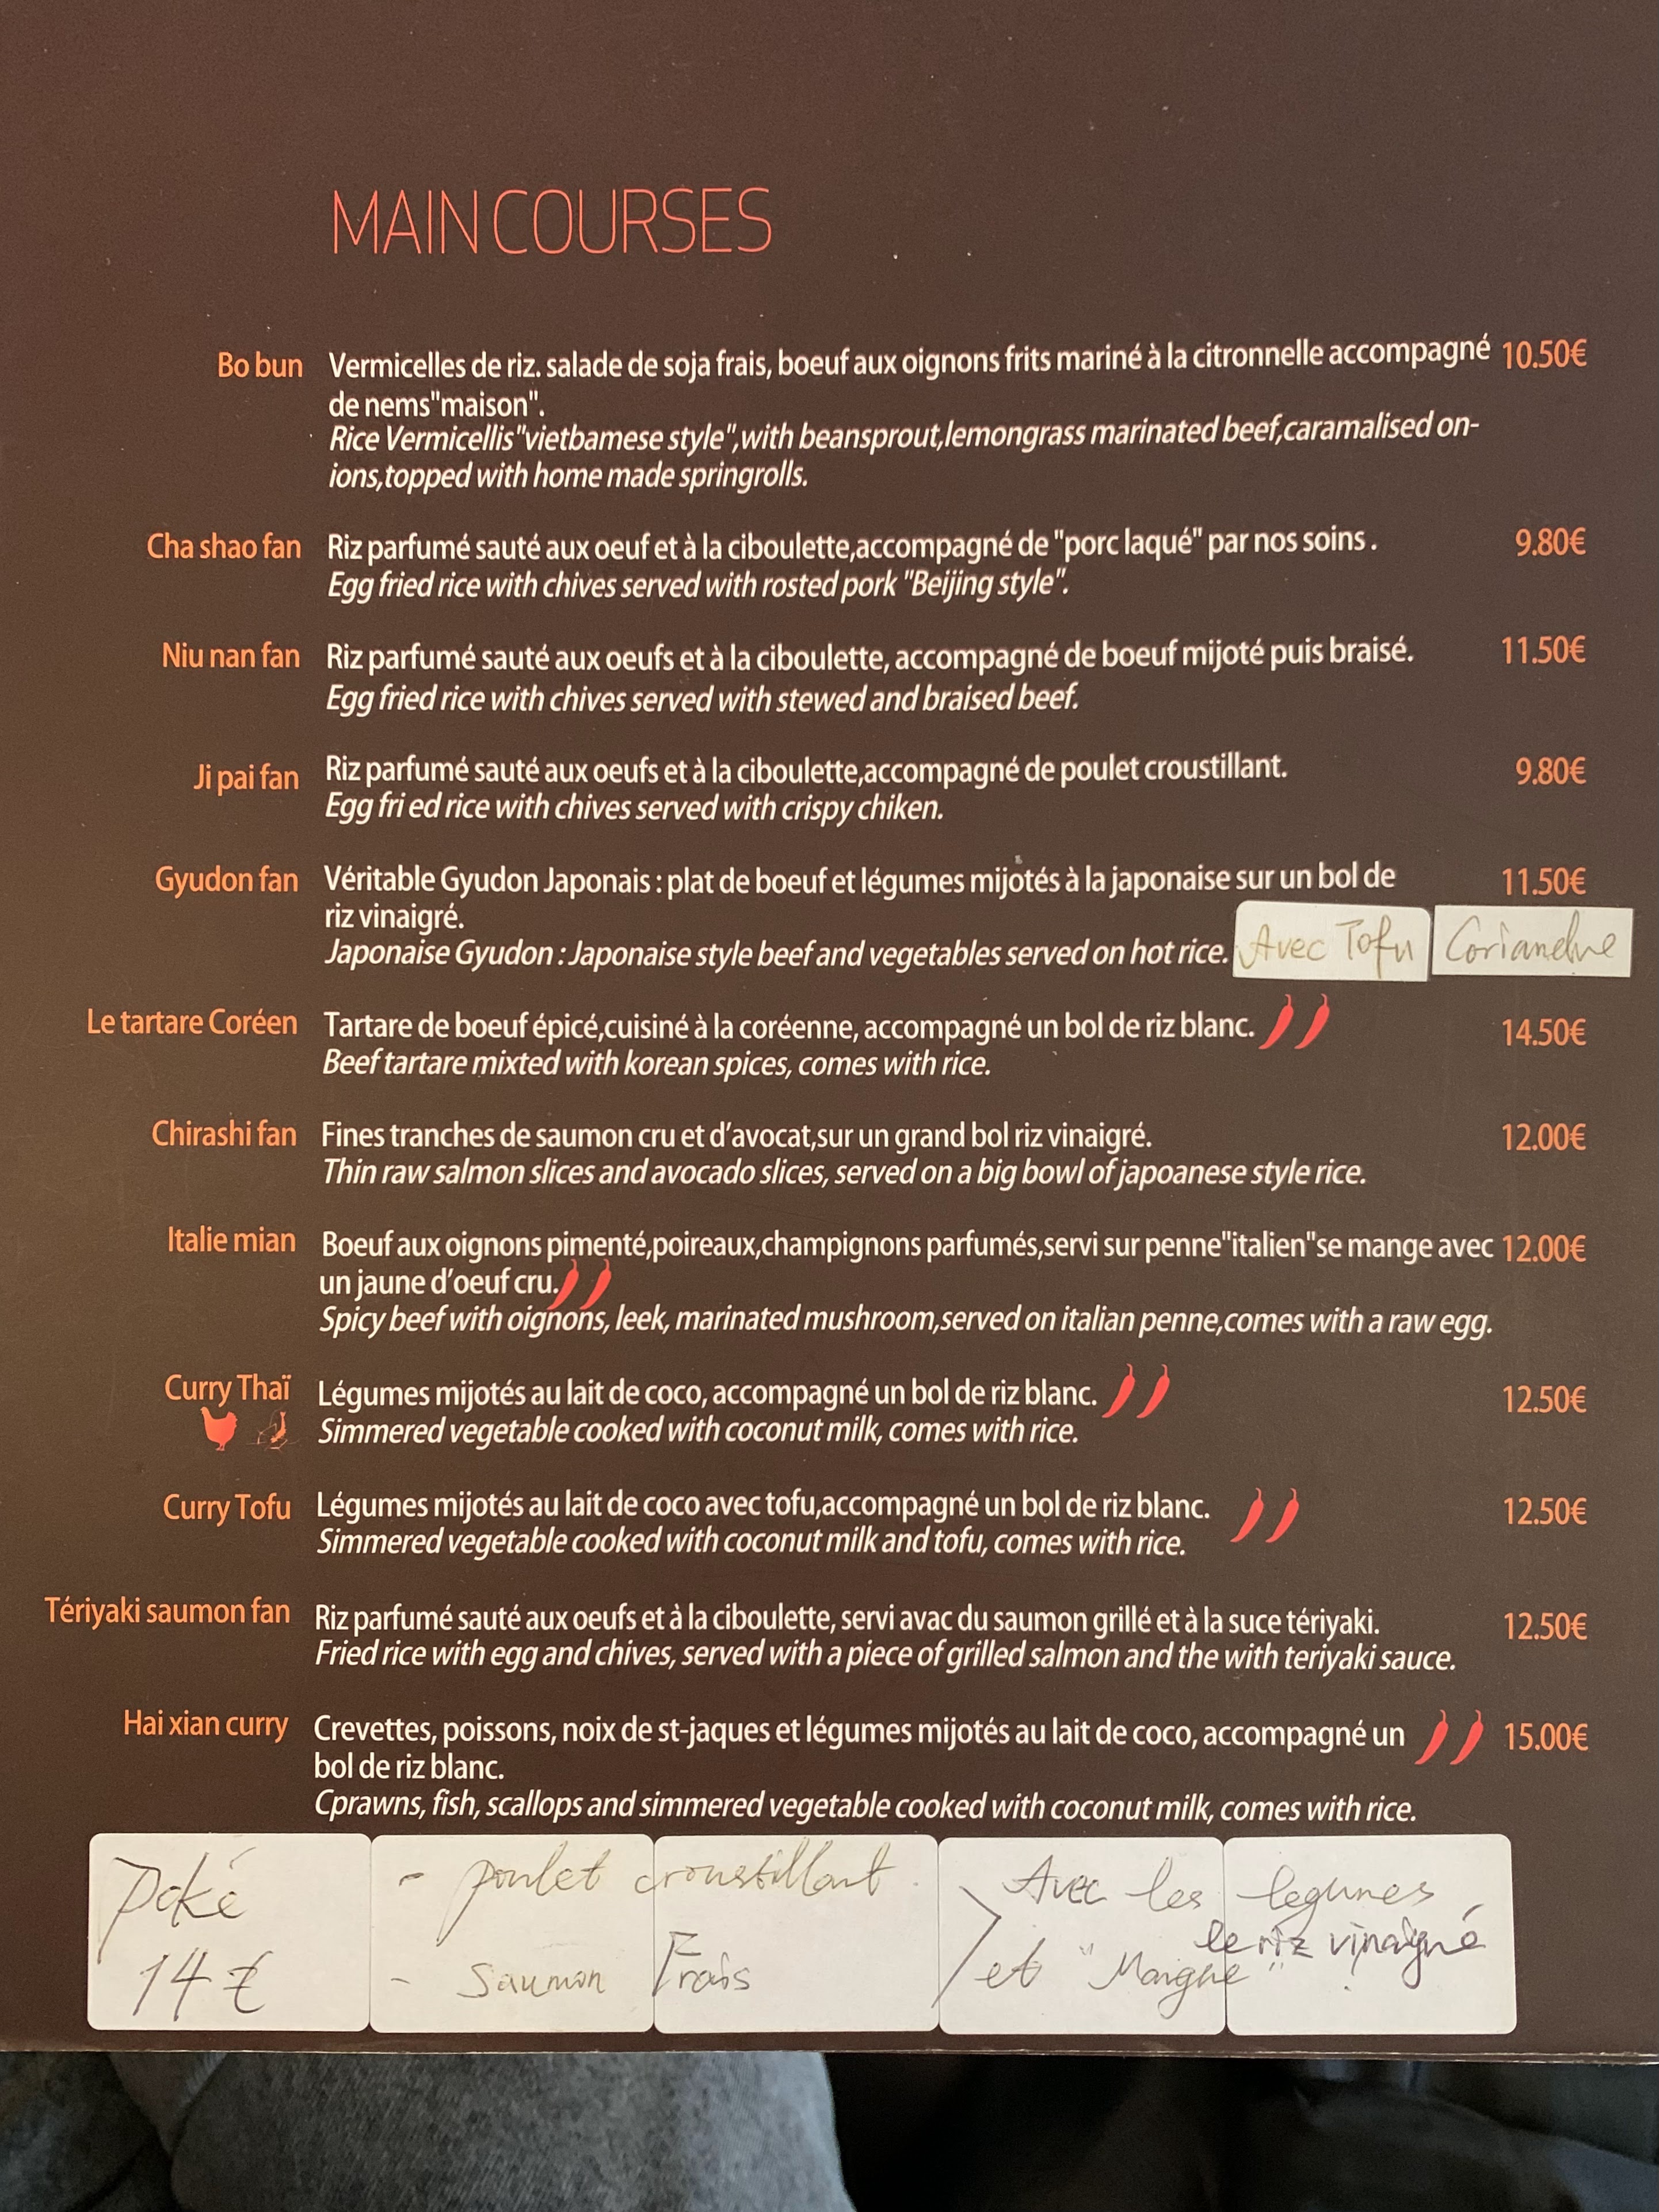 MAIN COURSES
Bo bun Vermicelles de riz. salade de soja frais, boeuf aux oignons frits mariné à la citronnelle accompagné 10.50€
de nems"maison".
Rice Vermicellis"vietbamese style",with beansprout,lemongrass marinated beef,caramalised on-
ions,topped with home made springrolls.
Cha shao fan Riz parfumé sauté aux oeuf et à la ciboulette,accompagné de "porc laqué" par nos soins . 9.80€
Egg fried rice with chives served with rosted pork "Beijing style".
Niu nan fan Riz parfumé sauté aux oeufs et à la ciboulette, accompagné de boeuf mijoté puis braisé. 11.50€
Egg fried rice with chives served with stewed and braised beef.
Ji pai fan Riz parfumé sauté aux oeufs et à la ciboulette,accompagné de poulet croustillant. 9.80€
Egg fri ed rice with chives served with crispy chiken.
Gyudon fan Véritable Gyudon Japonais : plat de boeuf et légumes mijotés à la japonaise sur un bol de 11.50€
riz vinaigré.
Japonaise Gyudon : Japonaise style beef and vegetables served on hot rice. Avec Tofu Coriandre
Le tartare Coréen Tartare de boeuf épicé,cuisiné à la coréenne, accompagné un bol de riz blanc. 14.50€
Beef tartare mixted with korean spices, comes with rice.
Chirashi fan Fines tranches de saumon cru et d'avocat,sur un grand bol riz vinaigré. 12.00€
Thin raw salmon slices and avocado slices, served on a big bowl of japoanese style rice.
Italie mian Boeuf aux oignons pimenté,poireaux,champignons parfumés,servi sur penne"italien"se mange avec 12.00€
un jaune d'oeuf cru.
Spicy beef with oignons, leek, marinated mushroom,served on italian penne,comes with a raw egg.
Curry Thaï Légumes mijotés au lait de coco, accompagné un bol de riz blanc. 12.50€
Simmered vegetable cooked with coconut milk, comes with rice.
Curry Tofu Légumes mijotés au lait de coco avec tofu,accompagné un bol de riz blanc. 12.50€
Simmered vegetable cooked with coconut milk and tofu, comes with rice.
Tériyaki saumon fan Riz parfumé sauté aux oeufs et à la ciboulette, servi avac du saumon grillé et à la suce tériyaki. 12.50€
Fried rice with egg and chives, served with a piece of grilled salmon and the with teriyaki sauce.
Hai xian curry Crevettes, poissons, noix de st-jaques et légumes mijotés au lait de coco, accompagné un 15.00€
bol de riz blanc.
Cprawns, fish, scallops and simmered vegetable cooked with coconut milk, comes with rice.
Poké - poulet croustillant. Avec les legumes
le riz vinaigré
14€ - Saumon Frais et "Mangue" !